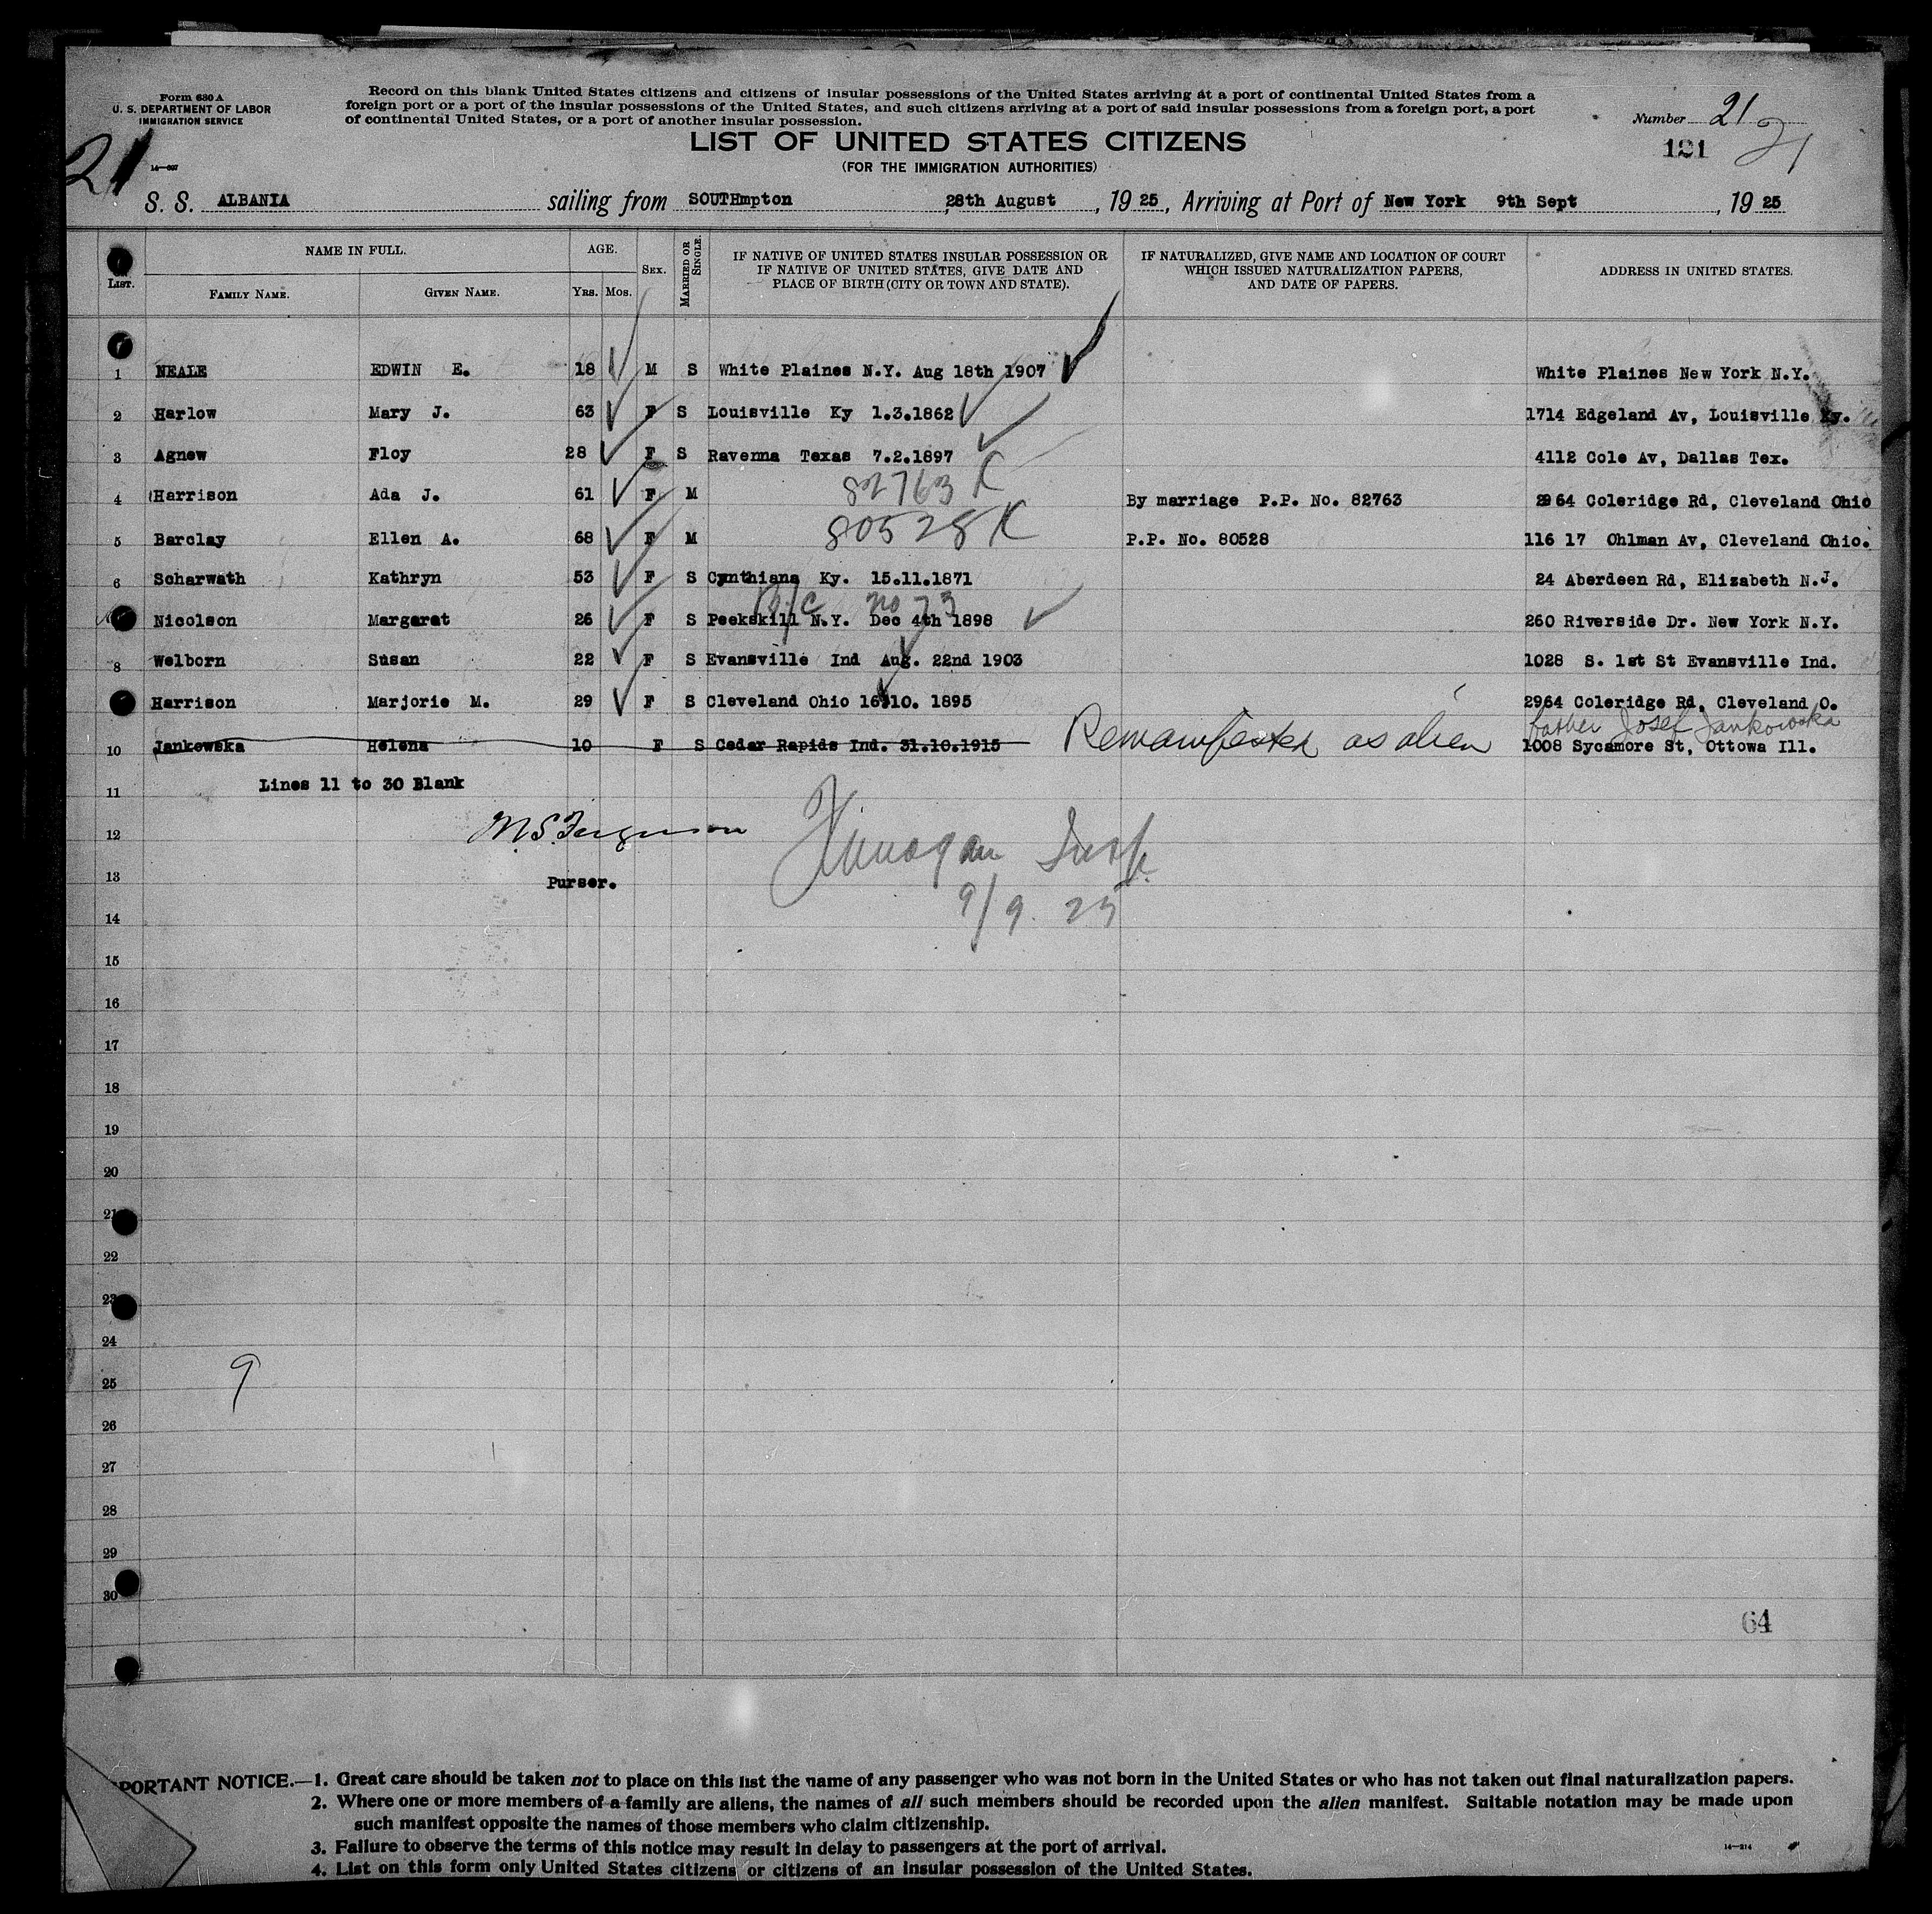 Form 630 A
U. S. DEPARTMENT OF LABOR
IMMIGRATION SERVICE
14—607
21
Record on this blank United States citizens and citizens of insular possessions of the United States arriving at a port of continental United States from a
foreign port or a port of the insular possessions of the United States, and such citizens arriving at a port of said insular possessions from a foreign port, a port
of continental United States, or a port of another insular possession.
Number 21
121 21
LIST OF UNITED STATES CITIZENS
(FOR THE IMMIGRATION AUTHORITIES)
S. S. ALBANIA sailing from SOUTHmpton, 28th August, 1925, Arriving at Port of New York 9th Sept, 1925
LIST. NAME IN FULL. AGE. SEX. MARRIED OR SINGLE. IF NATIVE OF UNITED STATES INSULAR POSSESSION OR IF NATIVE OF UNITED STATES, GIVE DATE AND PLACE OF BIRTH (CITY OR TOWN AND STATE). IF NATURALIZED, GIVE NAME AND LOCATION OF COURT WHICH ISSUED NATURALIZATION PAPERS, AND DATE OF PAPERS. ADDRESS IN UNITED STATES.
FAMILY NAME. GIVEN NAME. YRS. MOS.
1 NEALE EDWIN E. 18 M S White Plaines N.Y. Aug 18th 1907 White Plaines New York N.Y.
2 Harlow Mary J. 63 F S Louisville Ky 1.3.1862 1714 Edgeland Av, Louisville Ky.
3 Agnew Floy 28 F S Ravenna Texas 7.2.1897 4112 Cole Av, Dallas Tex.
82763 K
4 Harrison Ada J. 61 F M By marriage P.P. No. 82763 2964 Coleridge Rd, Cleveland Ohio
80528 K
5 Barclay Ellen A. 68 F M P.P. No. 80528 116 17 Ohlman Av, Cleveland Ohio.
6 Scharwath Kathryn 53 F S Cynthiana Ky. 15.11.1871 24 Aberdeen Rd, Elizabeth N.J.
B/C no 73
Nicolson Margaret 26 F S Peekskill N.Y. Dec 4th 1898 260 Riverside Dr. New York N.Y.
8 Welborn Susan 22 F S Evansville Ind Aug. 22nd 1903 1028 S. 1st St Evansville Ind.
Harrison Marjorie M. 29 F S Cleveland Ohio 16.10. 1895 2964 Coleridge Rd, Cleveland O.
father Josef Jankowska
10 Jankowska Helena 10 F S Cedar Rapids Ind. 31.10.1915 Remanifested as alien 1008 Sycamore St, Ottowa Ill.
11 Lines 11 to 30 Blank
12 M.S. Ferguson
13 Purser.
9/9 25
14
15
16
17
18
19
20
21
22
23
24
9
25
26
27
28
29
30
64
PORTANT NOTICE.—1. Great care should be taken not to place on this list the name of any passenger who was not born in the United States or who has not taken out final naturalization papers.
2. Where one or more members of a family are aliens, the names of all such members should be recorded upon the alien manifest. Suitable notation may be made upon
such manifest opposite the names of those members who claim citizenship.
3. Failure to observe the terms of this notice may result in delay to passengers at the port of arrival.
4. List on this form only United States citizens or citizens of an insular possession of the United States.
14—214